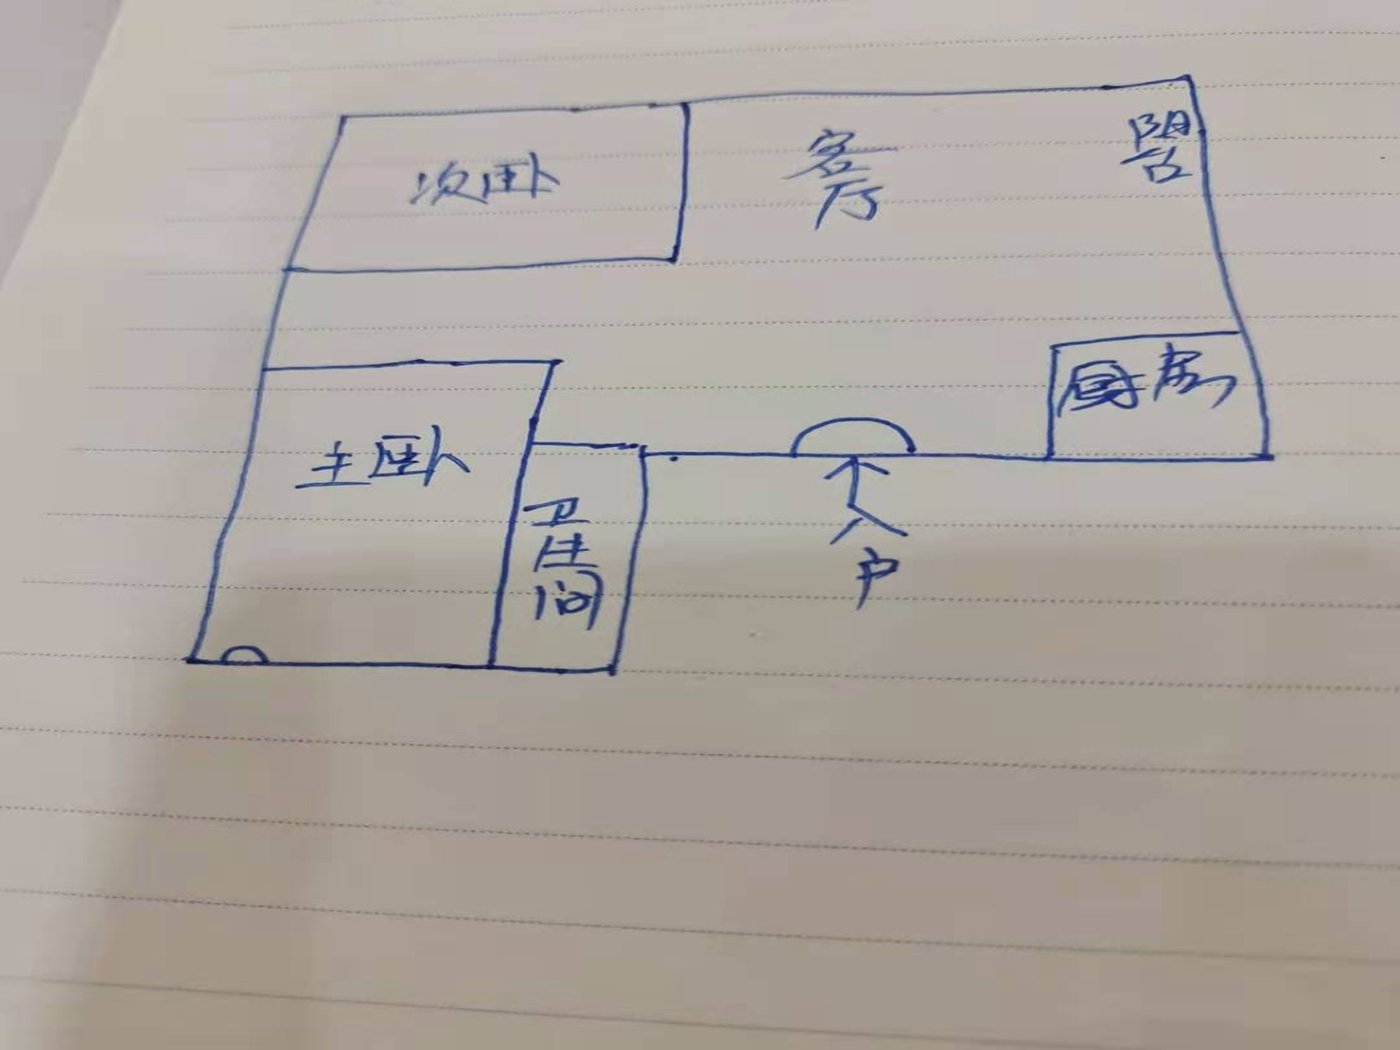 次卧
客厅
阳台
厨房
主卧
卫生间
入户